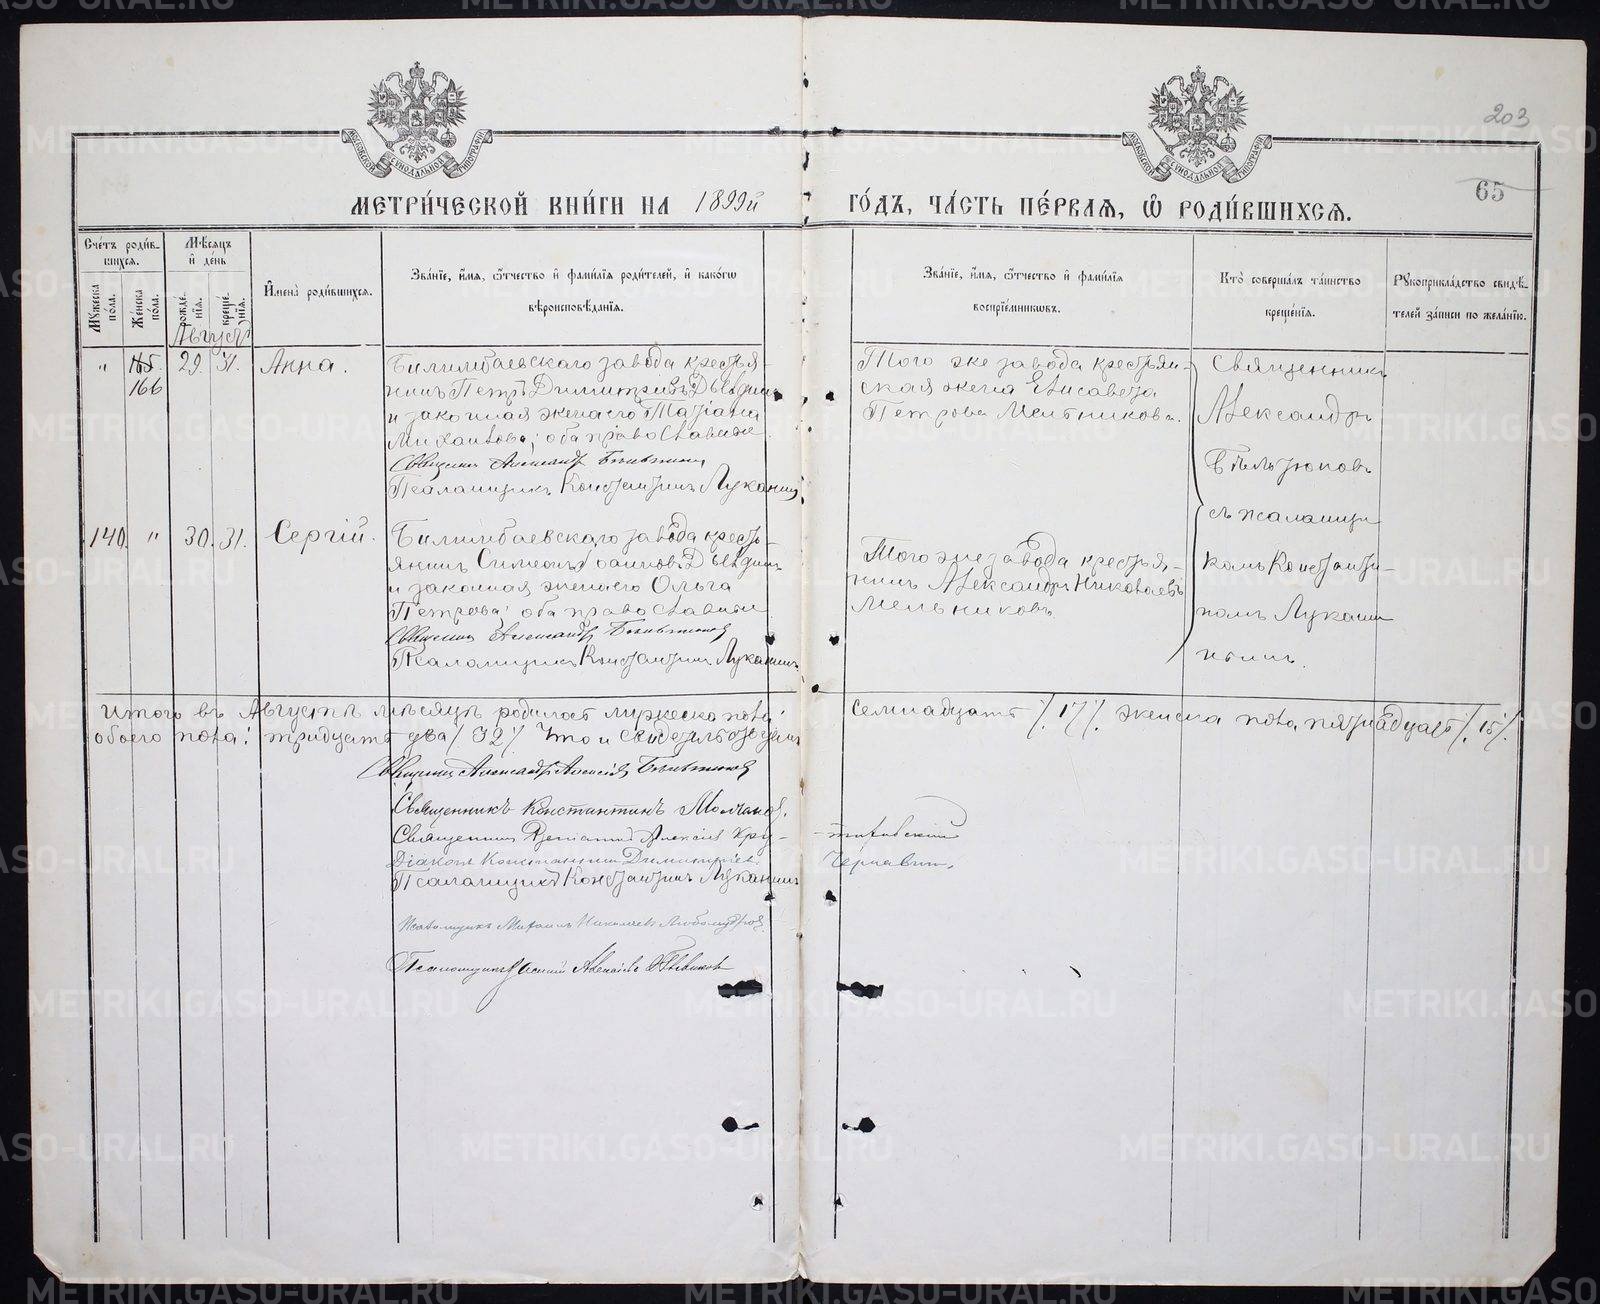 203
65
МОСКОВСКОЙ СѴНОДАЛЬНОЙ ТИПОГРАФІИ
МОСКОВСКОЙ СѴНОДАЛЬНОЙ ТИПОГРАФІИ
МЕТРИ́ЧЕСКОЙ КНИ́ГИ НА 1899й ГО́ДЪ, ЧА́СТЬ ПЕ́РВАЯ, Ѡ РОДИ́ВШИХСЯ.
Сче́тъ роди́в-
шихся.
Мꙋжеска по́ла.
Же́нска по́ла.
Мѣ́сяцъ и де́нь
рожде́нїя.
креще́нїя.
И҆мена̀ роди́вшихся.
Зва́нїе, и҆́мя, ѻ҆́тчество и҆ фами́лїя роди́телей, и҆ како́гѡ
вѣроисповѣ́данїя.
Зва́нїе, и҆́мя, ѻ҆́тчество и҆ фами́лїя
воспрїе́мникѡвъ.
Кто̀ соверша́лъ та́инство
креще́нїя.
Рꙋкоприкла́дство свидѣ́-
телей за́писи по жела́нїю.
Августъ
" 165. 29. 31. Анна.
166
Билимбаевскаго завода крестья-
нинъ Петръ Димитріевъ
и законная жена его Татіана
Михайлова; оба православные.
Священникъ Александръ
Псаломщикъ Константинъ Луканинъ
Того же завода крестьян-
ская жена Елисавета
Петрова Мельникова.
Священникъ
Александръ
съ псаломщи-
комъ Константи-
номъ Лукани-
нымъ.
140. " 30. 31. Сергій.
Билимбаевскаго завода кресть-
янинъ Симеонъ
и законная жена его Ольга
Петрова; оба православные
Священникъ Александръ
Псаломщикъ Константинъ Луканинъ
Того же завода крестья-
нинъ Александръ Николаевъ
Мельниковъ
Итого въ Августѣ мѣсяцѣ родилось мужеска пола: семнадцать /.17/. женска пола, пятнадцать /.15/.
обоего пола: тридцать два /32/. Что и свидетельствуемъ
Священникъ Александръ Алексіевъ
Священникъ Константинъ Молчанов.
Священникъ Веніаминъ Алексіевъ
Діаконъ Константинъ Димитріевъ
Псаломщикъ Константинъ Луканинъ
Псаломщикъ Михаилъ Николаевъ Любомудровъ.
Псаломщикъ
METRIKI.GASO-URAL.RU